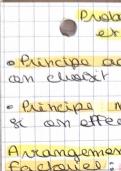 Proba
et
• Principe ad
on choisit
• Principe m
& on effec
Arrangemen
factoriel